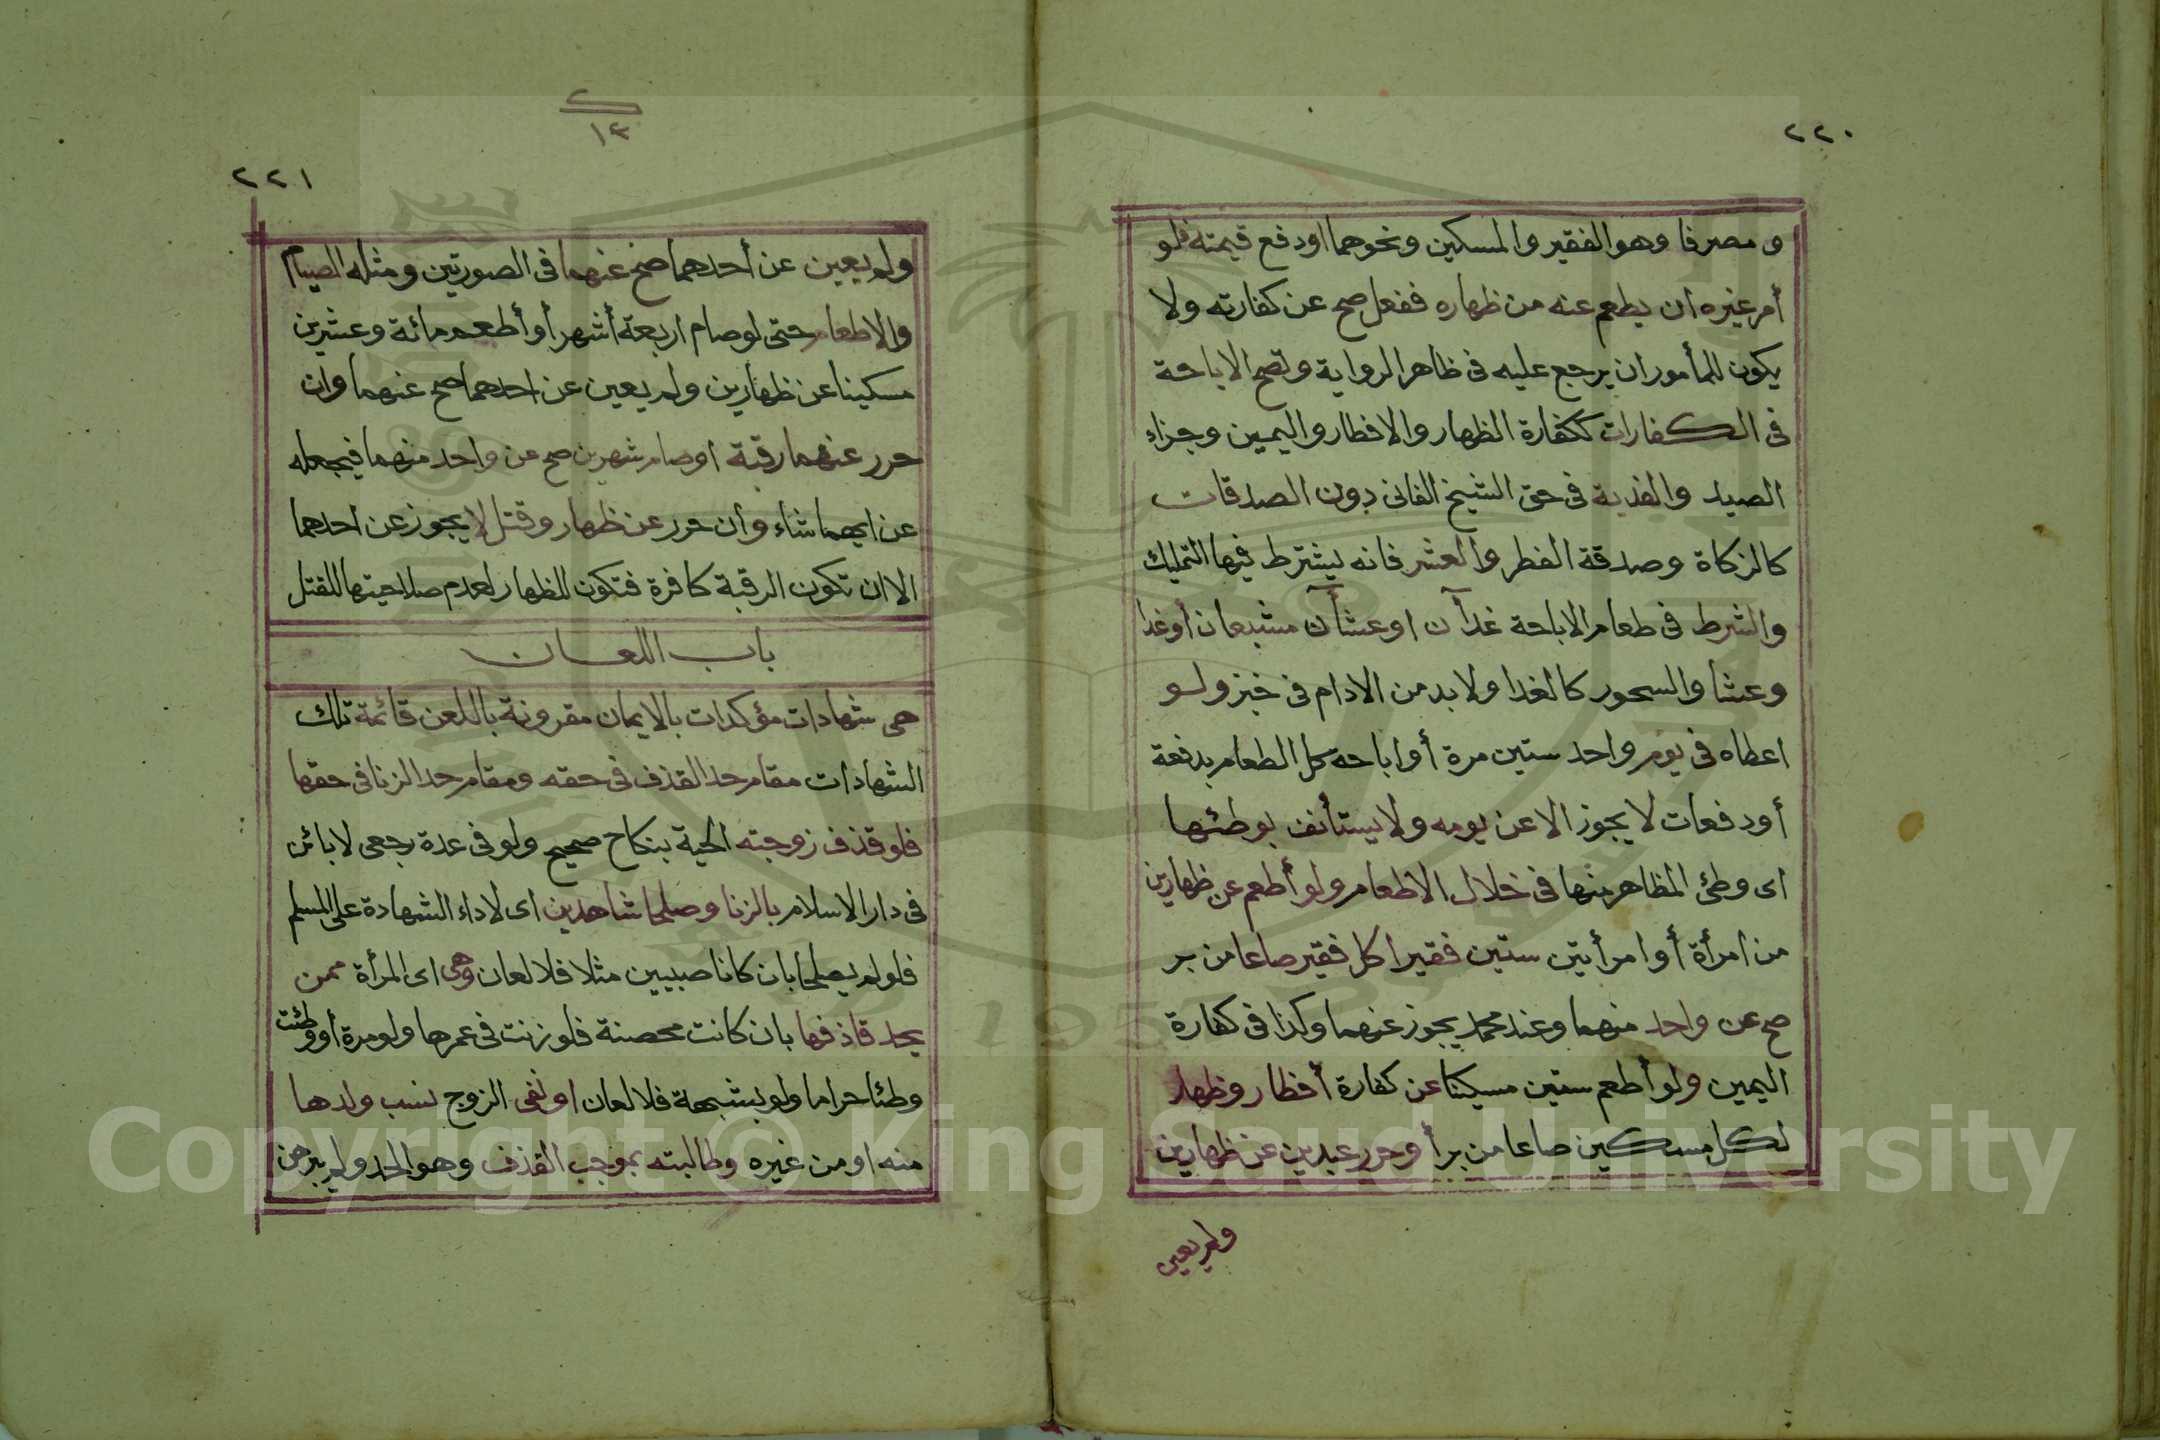 ٢٢٠
و مصرفا وهو الفقير والمسكين ونحوهما او دفع قيمته فلو
أمر غيره ان يطعم عنه من ظهاره ففعل صح عن كفارته ولا
يكون للمأمور ان يرجع عليه فى ظاهر الرواية وتصح الاباحة
فى الكفارات ككفارة الظهار والافطار واليمين وجزاء
الصيد والفدية فى حق الشيخ الفانى دون الصدقات
كالزكاة وصدقة الفطر والعشر فانه يشترط فيها التمليك
والشرط فى طعام الاباحة غدآن او عشآن مشبعان أو غدا
وعشا والسحور كالغدا ولا بد من الادام فى خبز ولو
اعطاه فى يوم واحد ستين مرة أو اباحه كل الطعام بدفعة
أو دفعات لا يجوز الا عن يومه ولا يستأنف بوطئها
اى وطئ المظاهر منها فى خلال الاطعام ولو أطعم عن ظهارين
من امرأة أو امرأتين ستين فقيرا كل فقير صاعا من بر
صح عن واحد منهما وعند محمد يجوز عنهما وكذا فى كفارة
اليمين ولو أطعم ستين مسكينا عن كفارة أفطار وظهار
لكل مسكين صاعا من بر أو حرر عبدين عن ظهارين
ولم يعين
٢٢١
١٢
ولم يعين عن أحدهما صح عنهما فى الصورتين ومثله الصيام
والاطعام حتى لو صام اربعة أشهر أو أطعم مائة وعشرين
مسكينا عن ظهارين ولم يعين عن احدهما صح عنهما وان
حرر عنهما رقبة او صام شهرين صح عن واحد منهما فيجعله
عن ايهما شاء وأن حرر عن ظهار وقتل لا يجوز عن احدهما
الا ان تكون الرقبة كافرة فتكون للظهار لعدم صلاحيتها للقتل
باب اللعان
هى شهادات مؤكدات بالايمان مقرونة باللعن قائمة تلك
الشهادات مقام حد القذف فى حقه ومقام حد الزنا فى حقها
فلو قذف زوجته الحية بنكاح صحيح ولو فى عدة رجعى لا بائن
فى دار الاسلام بالزنا وصلحا شاهدين اى لاداء الشهادة على المسلم
فلو لم يصلحا بان كانا صبيين مثلا فلا لعان وهى اى المرأة ممن
يحد قاذفها بان كانت محصنة فلو زنت فى عمرها ولو مرة أو وطئت
وطئا حراما ولو بشبهة فلا لعان او نفى الزوج نسب ولدها
منه او من غيره وطالبته بموجب القذف وهو الحد ولم يبرهن
Copyright © King Saud University